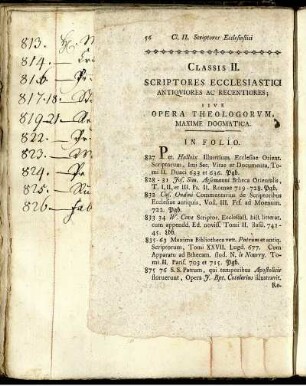 813.
814.
816
817-18.
819-21
822.
823.
824.
825.
826
56 Cl. II. Scriptores Ecclesiastici
CLASSIS II.
SCRIPTORES ECCLESIASTICI
ANTIQVIORES AC RECENTIORES;
SIVE
OPERA THEOLOGORVM,
MAXIME DOGMATICA.
IN FOLIO.
827 Pet. Halloix Illustrium Ecclesiae Orient.
Scriptorum, Imi Sec. Vitae et Documenta, Tomi
II. Duaci 633 et 646. Pgb.
828-31 Jos. Sim. Assemanni Bibeca Orientalis,
T. I, II, et III. Ps. II. Romae 719-753. Pgb.
832 Cas. Oudini Commentarius de Scriptoribus
Ecclesiae antiquis, Voll. III. Frf. ad Moenum.
722. Pgb.
833 34 W. Cave Scriptor. Ecclesiast. hist. litterar.
cum append. Ed. noviss. Tomi II. Basil. 741-
45. Hfr.
835-63 Maxima Bibliotheca vett. Patrum et antiq.
Scriptorum, Tomi XXVII. Lugd. 677. Cum
Apparatu ad Bibecam. stud. N. le Nourry. Tomi
II. Paris. 703 et 715. Pgb.
875 76 S. S. Patrum, qui temporibus Apostolicis
floruerunt, Opera J. Bapt. Cotelerius illustravit.
Re-